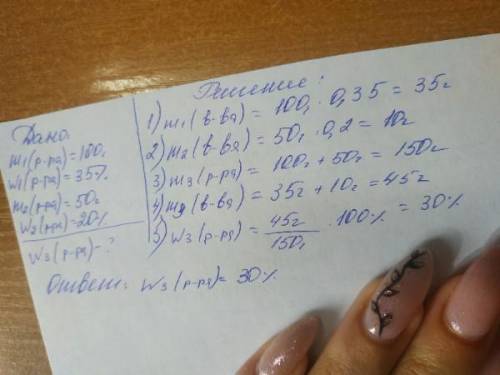 Дано:
m₁(р-ра)=100г
w₁(р-ра)=35%
m₂(р-ра)=50г
w₂(р-ра)=20%
w₃(р-ра)-?
Решение:
1) m₁(в-ва) = 100г · 0,35 = 35г
2) m₂(в-ва) = 50г · 0,2 = 10г
3) m₃(р-ра) = 100г + 50г = 150г
4) m₃(в-ва) = 35г + 10г = 45г
5) w₃(р-ра) = 45г/150г · 100% = 30%
Ответ: w₃(р-ра) = 30%